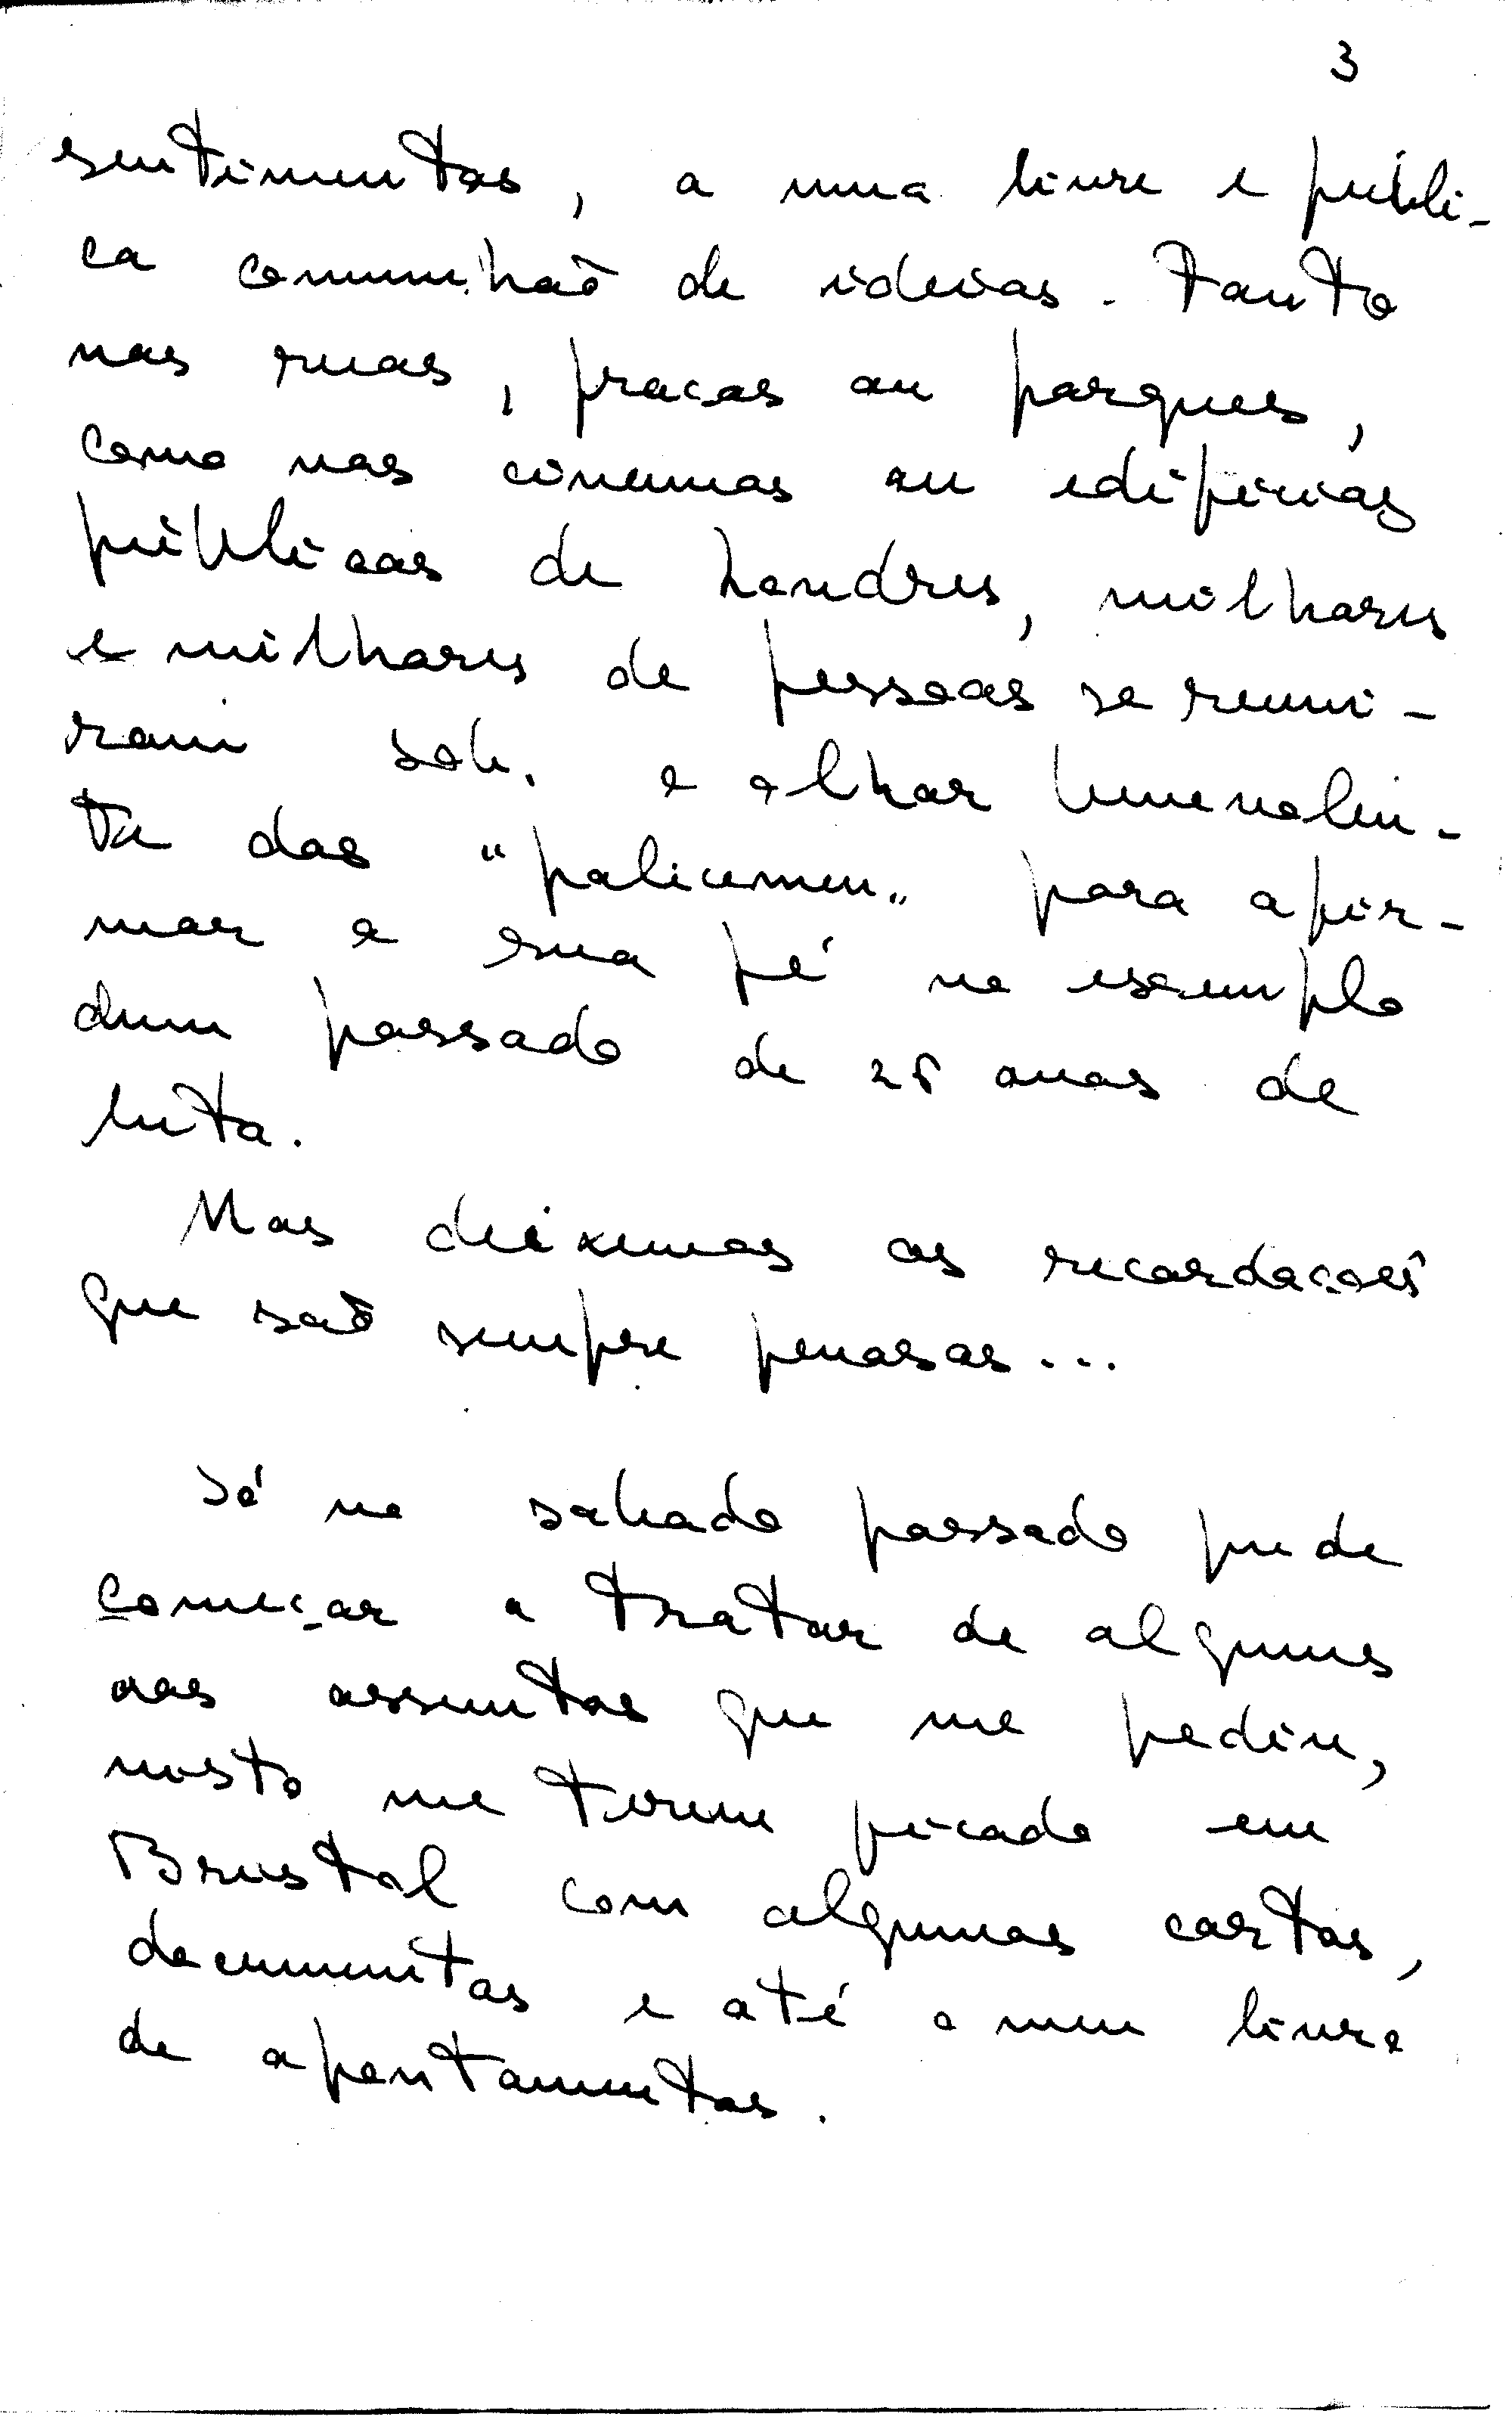 3
sentimentos, a uma livre e públi-
ca comunhão de ideias. Tanto
nas ruas, praças ou parques,
como nos cinemas ou edifícios
públicos de Londres, milhares
e milhares de pessoas se reuni-
ram sob o olhar benevolen-
te dos "policemen" para afir-
mar a sua fé no exemplo
dum passado de 25 anos de
luta.
Mas deixemos as recordações
que são sempre penosas...
Só no sabado passado pude
começar a tratar de alguns
dos assuntos que me pediu,
visto me terem ficado em
Bristol com algumas cartas,
documentos e até o meu livro
de apontamentos.